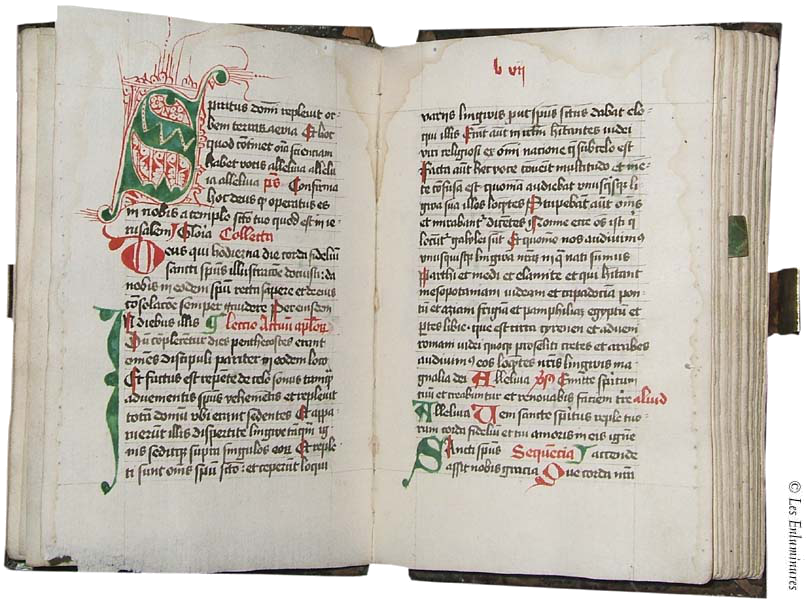 Spiritus domini repleuit or-
bem terraru alleluia Et hoc
quod continet oia scienciam
habet vocis alleluia allelu
ia alleluia ps Confirma
hoc deus q operatus es
in nobis a templo scto tuo quod est in ie-
rusalem Gloia Collecta
Deus qui hodierna die corda fidelium
sancti spus illustracone docuisti: da
nobis in eodem spu recta sapere et de eius
consolacone semper gaudere Per eiusdem
In diebus illis Leccio Actuu aplor
Cu coplerentur dies penthecostes erant
omes discipuli pariter in eodem loco
Et factus est repete de celo sonus tamq
aduenientis spus vehementis et repleuit
tota domu vbi erant sedentes Et appa-
ruerunt illis dispertite lingwe tamq ig-
nis seditq supra singulos eor Et reple-
ti sunt omes spu scto: et ceperunt loqui
l vii
varijs lingwis put spus sctus dabat elo-
qui illis Erat aut in irlm hitantes iudei
viri religiosi ex omi nacione q sub celo est
Facta aut hec voce conuenit multitudo et me-
te cofusa est quonia audiebat vnusqsq li
gwa sua illos loqntes Stupebat aut oms
et mirabant dicetes Nonne ecce oes isti q
locunt galylei sunt Et quomo nos audiuim9
vnusquisq lingwa nram in q nati sumus
Parthi et medi et elamite et qui hitant
mesopotamiam iudeam et capadociam pon
tu et asiam frigia et pamphiliam egyptu et
ptes libie que est circa cyrenen et aduene
romani iudei quoq proseliti cretes et arabes
audiuim9 eos loqntes nris lingwis ma
gnalia dei Alleluia vs Emitte spiritum
tuu et creabuntur et renouabis faciem tre aliud
Alleluia Veni sancte spiritus reple tuo-
rum corda fidelium et tui amoris in eis igne
Sancti spus Sequencia accende
assit nobis gracia Que corda nra
© Les Enluminures